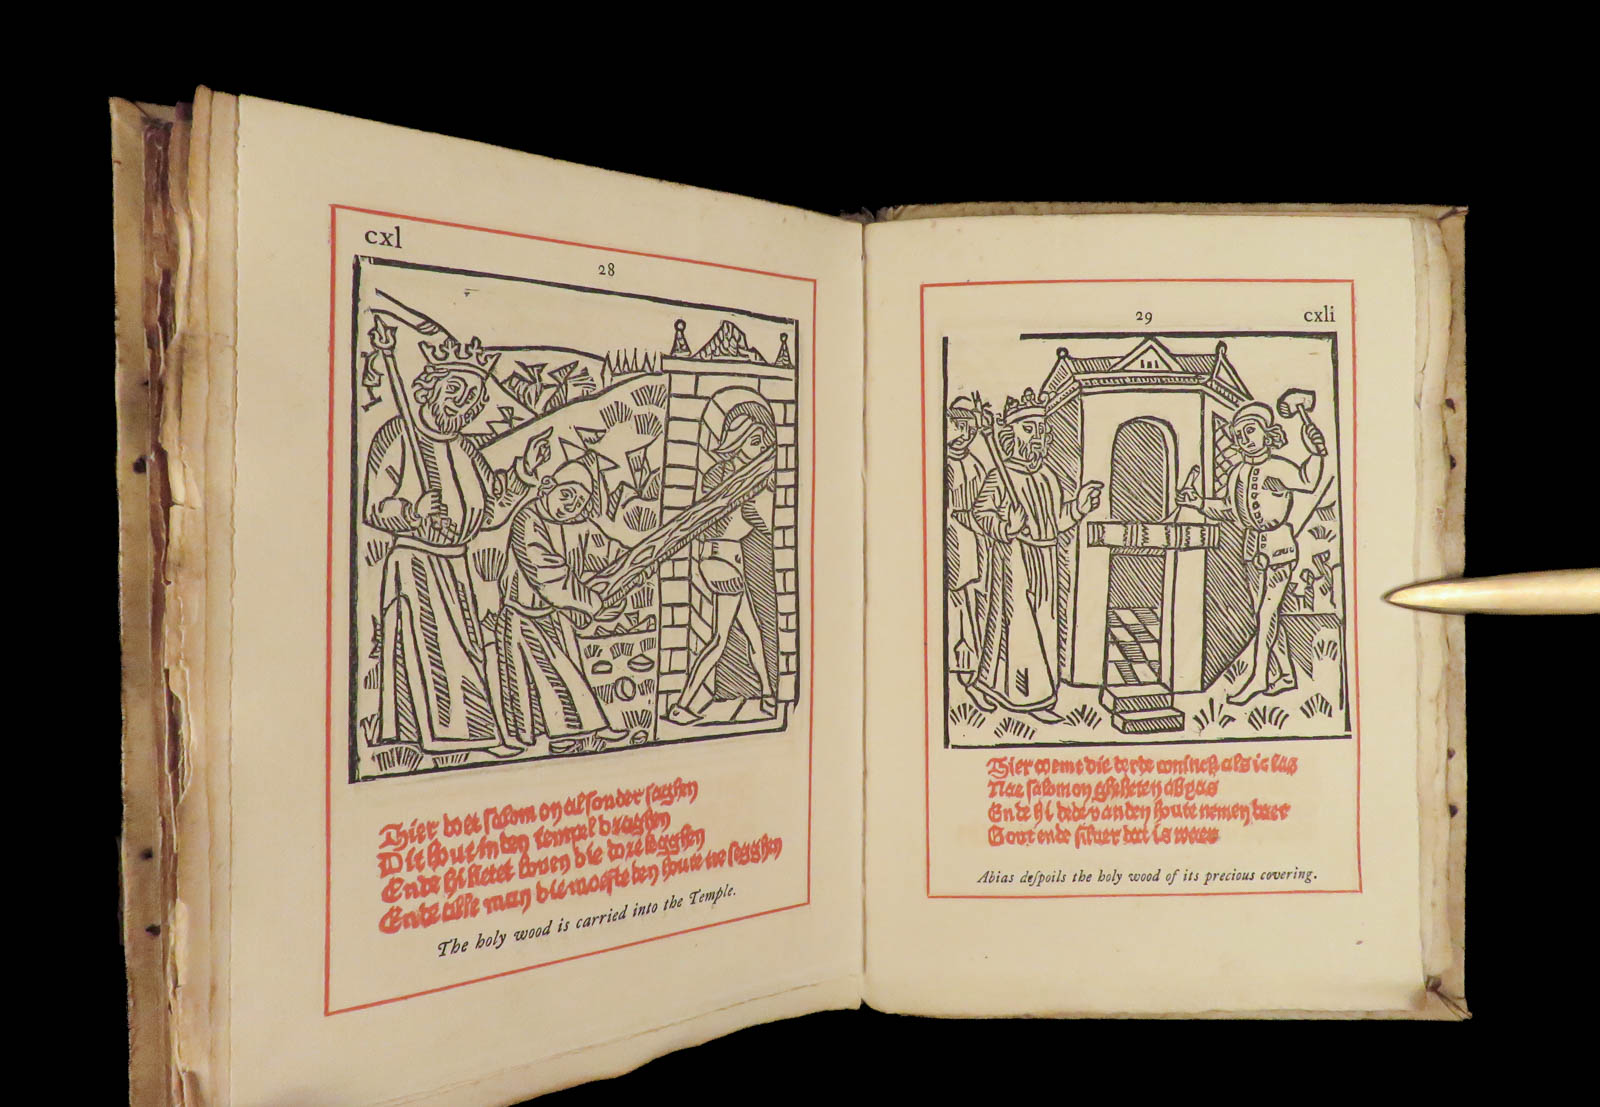 cxl
28
Hier doet salomon al sonder saghen
Dit hout in den tempel draghen
Ende hi
Ende alle man die moeste den houte
The holy wood is carried into the Temple.
29
cxli
Hier coemt die derde coninck als ic las
Nae salomon gheheten abyas
Ende hi dede van den houte nemen daer
Gout ende siluer dat is waer
Abias deſpoils the holy wood of its precious covering.